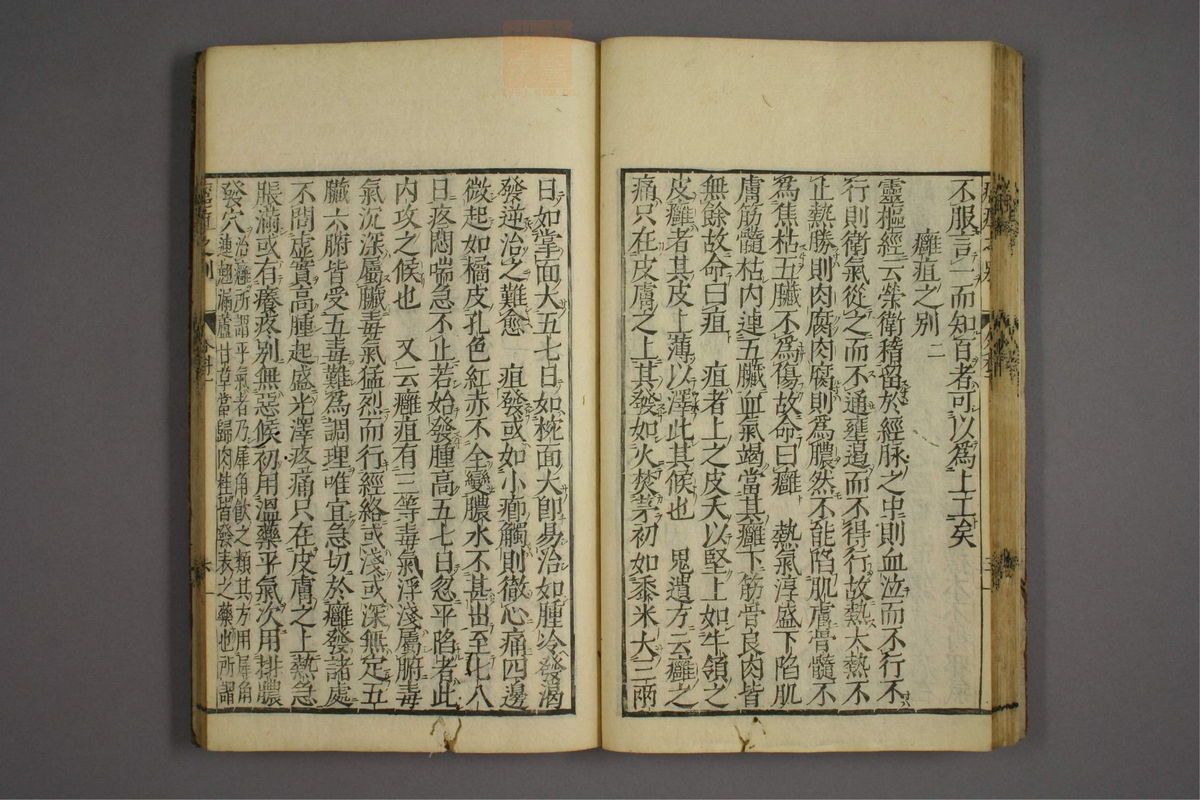 不服言一而知百者可以為上工矣
癰疽之別 二
靈樞經云榮衛稽留於經脉之中則血泣而不行不
行則衛氣從之而不通壅遏而不得行故熱大熱不
止熱勝則肉腐肉腐則為膿然不能陷肌膚骨髓不
為焦枯五臟不為傷故命曰癰 熱氣淳盛下陷肌
膚筋髓枯内連五臟血氣竭當其癰下筋骨良肉皆
無餘故命曰疽 疽者上之皮夭以堅上如牛領之
皮癰者其皮上薄以澤此其候也 鬼遺方云癰之
痛只在皮膚之上其發如火焚茅初如黍米大三兩
日如掌面大五七日如椀面大卽易治如腫冷發渴
發逆治之難愈 疽發或如小癤觸則徹心痛四邊
微起如橘皮孔色紅赤不全變膿水不甚出至七八
日疼悶喘急不止若始發腫高五七日忽平陷者此
内攻之候也 又云癰疽有三等毒氣浮淺屬腑毒
氣沉深屬臟毒氣猛烈而行經絡或淺或深無定五
臟六腑皆受五毒難為調理唯宜急切於癰發諸處
不問虛實高腫起盛光澤疼痛只在皮膚之上熱急
脹滿或有癢疼別無惡候初用溫藥平氣次用排膿
發穴治癰所謂平氣者乃犀角飲之類其方用犀角
連翹漏蘆甘草當歸肉桂皆發表之藥也所謂